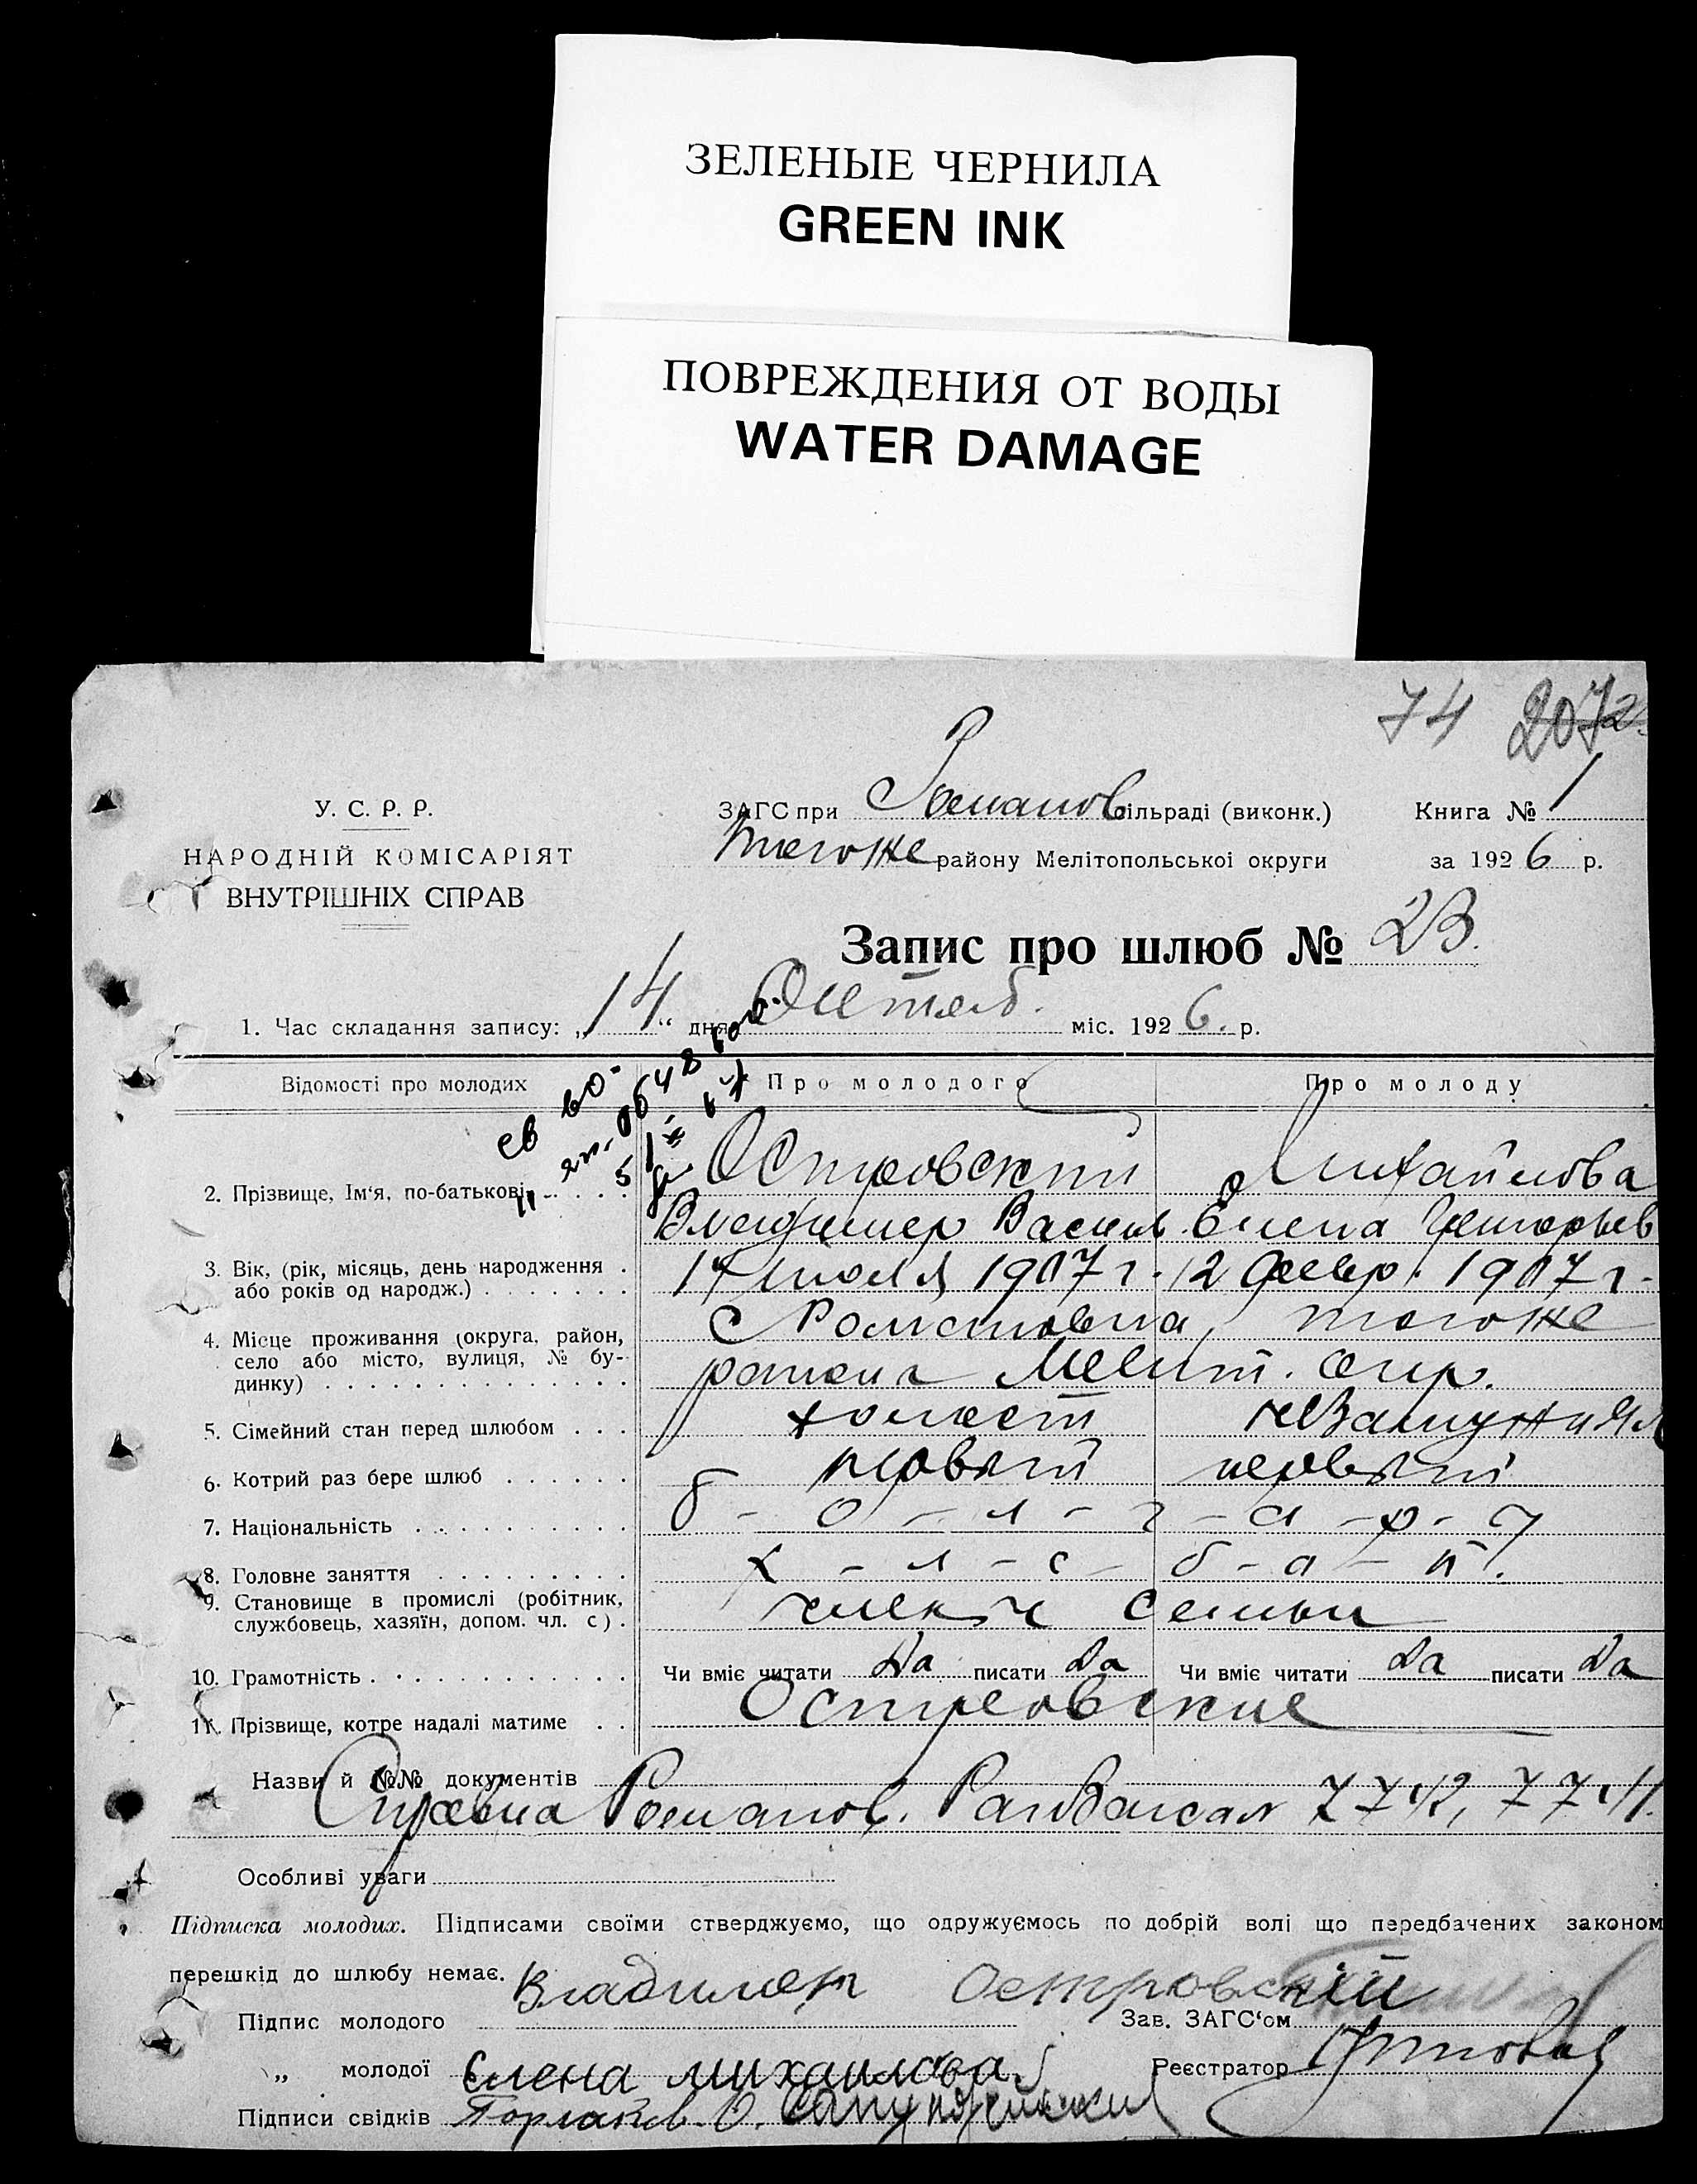 ЗЕЛЕНЫЕ ЧЕРНИЛА
GREEN INK
ПОВРЕЖДЕНИЯ ОТ ВОДЫ
WATER DAMAGE
74 2072
У. С. Р. Р.
НАРОДНІЙ КОМІСАРІЯТ
ВНУТРІШНІХ СПРАВ
ЗАГС при Романов ільраді (виконк.) Книга № 1
тогоже району Мелітопольської округи за 1926 р.
Запис про шлюб № 23.
1. Час складання запису: „14“ дня Октяб. міс. 1926. р.
Відомості про молодих Про молодого Про молоду
2. Прізвище, Ім‘я, по-батькові Островский Михайлова
Владимер Васил. Елена Григорьев
3. Вік, (рік, місяць, день народження . 17 июля 1907 г. 12 февр. 1907 г.
або років од народж.)
4. Місце проживання (округа, район, С Романовка, тогоже
село або місто, вулиця, № бу-
динку) района Мелит. окр.
5. Сімейний стан перед шлюбом холост незамужняя
6. Котрий раз бере шлюб первый первый
7. Національність б - о - л - г - а - р - ?
8. Головне заняття х - л - е - б - а - п.
9. Становище в промислі (робітник,
службовець, хазяїн, допом. чл. с) . члены семьи
10. Грамотність Чи вміє читати Да писати Да Чи вміє читати Да писати Да
11. Прізвище, котре надалі матиме Островские
Назви й №№ документів
Справка Романов. 7742, 7741.
Особливі уваги
Підписка молодих. Підписами своїми стверджуємо, що одружуємось по добрій волі що передбачених законом
перешкід до шлюбу немає.
Підпис молодого Владимер Островский Зав. ЗАГС‘ом
„ молодої Елена михайлова Реєстратор
Підписи свідків